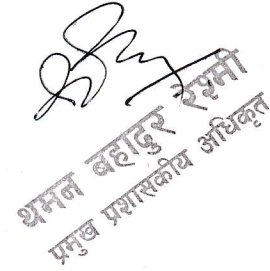 थमन बहादुर रश्मी
प्रमुख प्रशासकीय अधिकृत